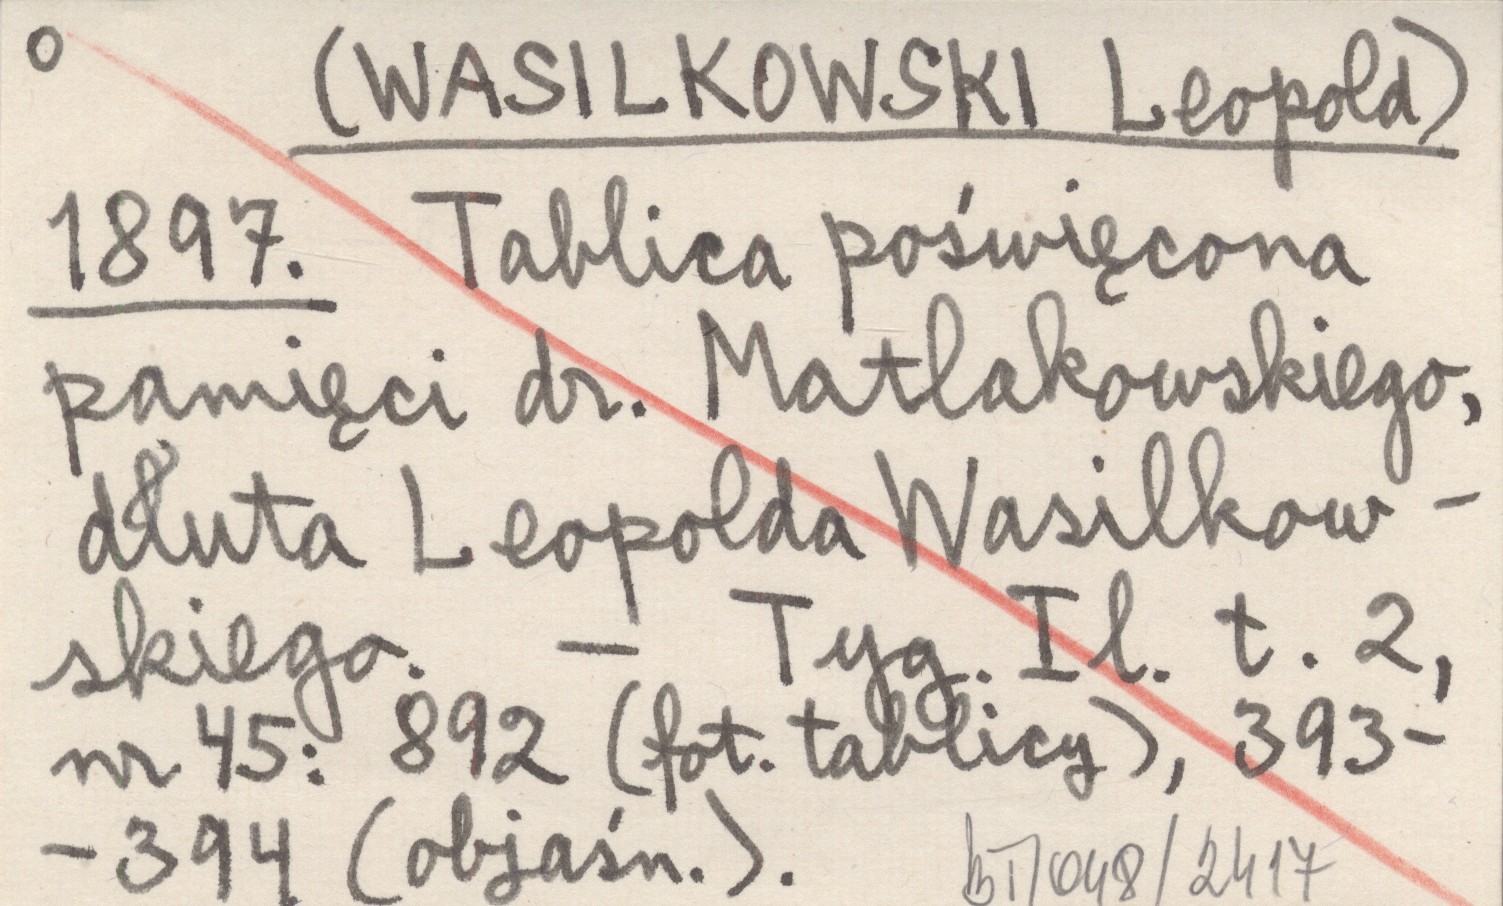 o (WASILKOWSKI Leopold)
1897. Tablica poświęcona
pamięci dr. Matlakowskiego,
dłuta Leopolda Wasilkow-
skiego. — Tyg. Il. t. 2,
nr 45: 892 (fot. tablicy), 393-
-394 (objaśn.).
bT/048/2417